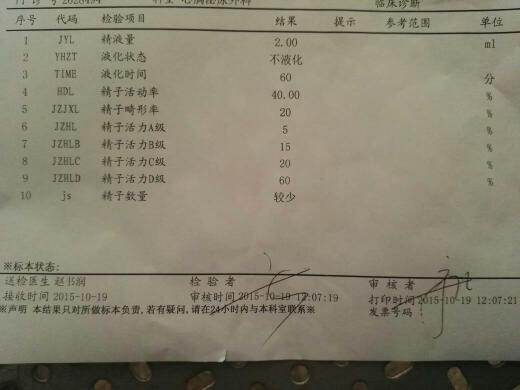 序号 代码 检验项目 结果 提示 参考范围 单位
1 JYL 精液量 2.00 ml
2 YHZT 液化状态 不液化
3 TIME 液化时间 60 分
4 HDL 精子活动率 40.00 %
5 JZJXL 精子畸形率 20 %
6 JZHL 精子活力A级 5 %
7 JZHLB 精子活力B级 15 %
8 JZHLC 精子活力C级 20 %
9 JZHLD 精子活力D级 60 %
10 js 精子数量 较少
※标本状态:
送检医生 赵书润 检验者 审核者
接收时间 2015-10-19 审核时间 2015-10-19 12:07:19 打印时间 2015-10-19 12:07:21
※声明 本结果只对所做标本负责,若有疑问,请在24小时内与本科室联系※ 发票号码